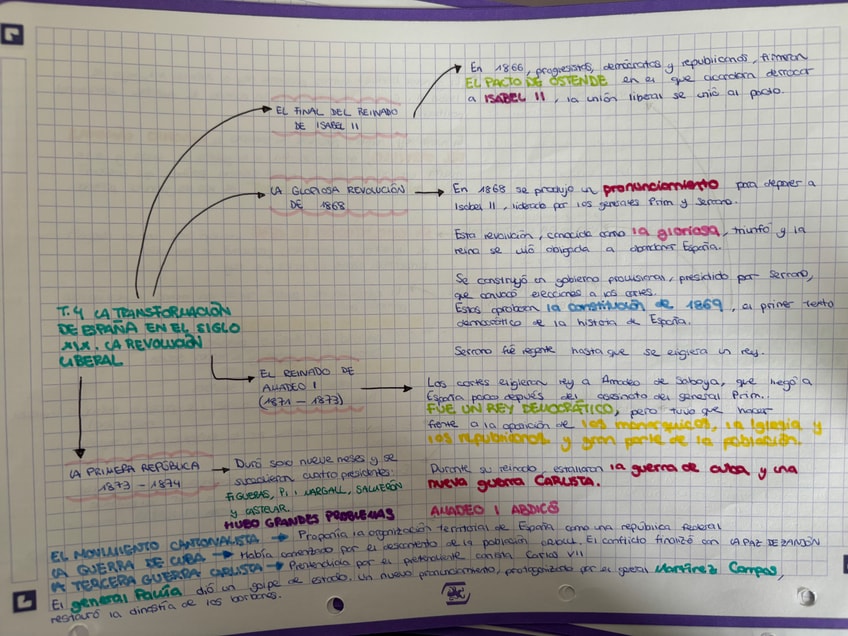 En 1866, progresistas, demócratas y republicanos, firmaron
EL PACTO DE OSTENDE en el que acordaban derrocar
a ISABEL II, la unión liberal se unió al pacto.
EL FINAL DEL REINADO
DE ISABEL II
LA GLORIOSA REVOLUCIÓN
DE 1868
En 1868 se produjo un pronunciamiento para deponer a
Isabel II, liderado por los generales Prim y Serrano.
Esta revolución, conocida como la gloriosa, triunfó y la
reina se vió obligada a abandonar España.
Se construyó un gobierno provisional, presidido por Serrano,
que convocó elecciones a las cortes.
Estas aprobaban la constitución de 1869, el primer texto
democrático de la historia de España.
Serrano fué regente hasta que se eligiera un rey.
T.4 LA TRANSFORMACIÓN
DE ESPAÑA EN EL SIGLO
XIX. LA REVOLUCIÓN
LIBERAL
EL REINADO DE
AMADEO I
(1871 – 1873)
Las cortes eligieron rey a Amadeo de Saboya, que llegó a
España poco después del asesinato del general Prim.
FUE UN REY DEMOCRÁTICO, pero tuvo que hacer
frente a la oposición de los monarquicos, la Iglesia y
los republicanos y gran parte de la población.
Durante su reinado, estallaron la guerra de cuba y una
nueva guerra CARLISTA.
AMADEO I ABDICÓ
LA PRIMERA REPÚBLICA
1873 – 1874
Duró solo nueve meses y se
sucedieron cuatro presidentes:
FIGUERAS, PI i MARGALL, SALMERÓN
y CASTELAR.
HUBO GRANDES PROBLEMAS
EL MOVIMIENTO CANTONALISTA → Proponía la organización territorial de España como una república federal
LA GUERRA DE CUBA → Había comenzado por el descontento de la población El conflicto finalizó con LA PAZ DE ZANJÓN
LA TERCERA GUERRA CARLISTA → por el pretendiente carlista Carlos VII
El general Pavía dió un golpe de estado. Un nuevo pronunciamiento, protagonizado por el general Martínez Campos,
restauró la dinastía de los borbones.